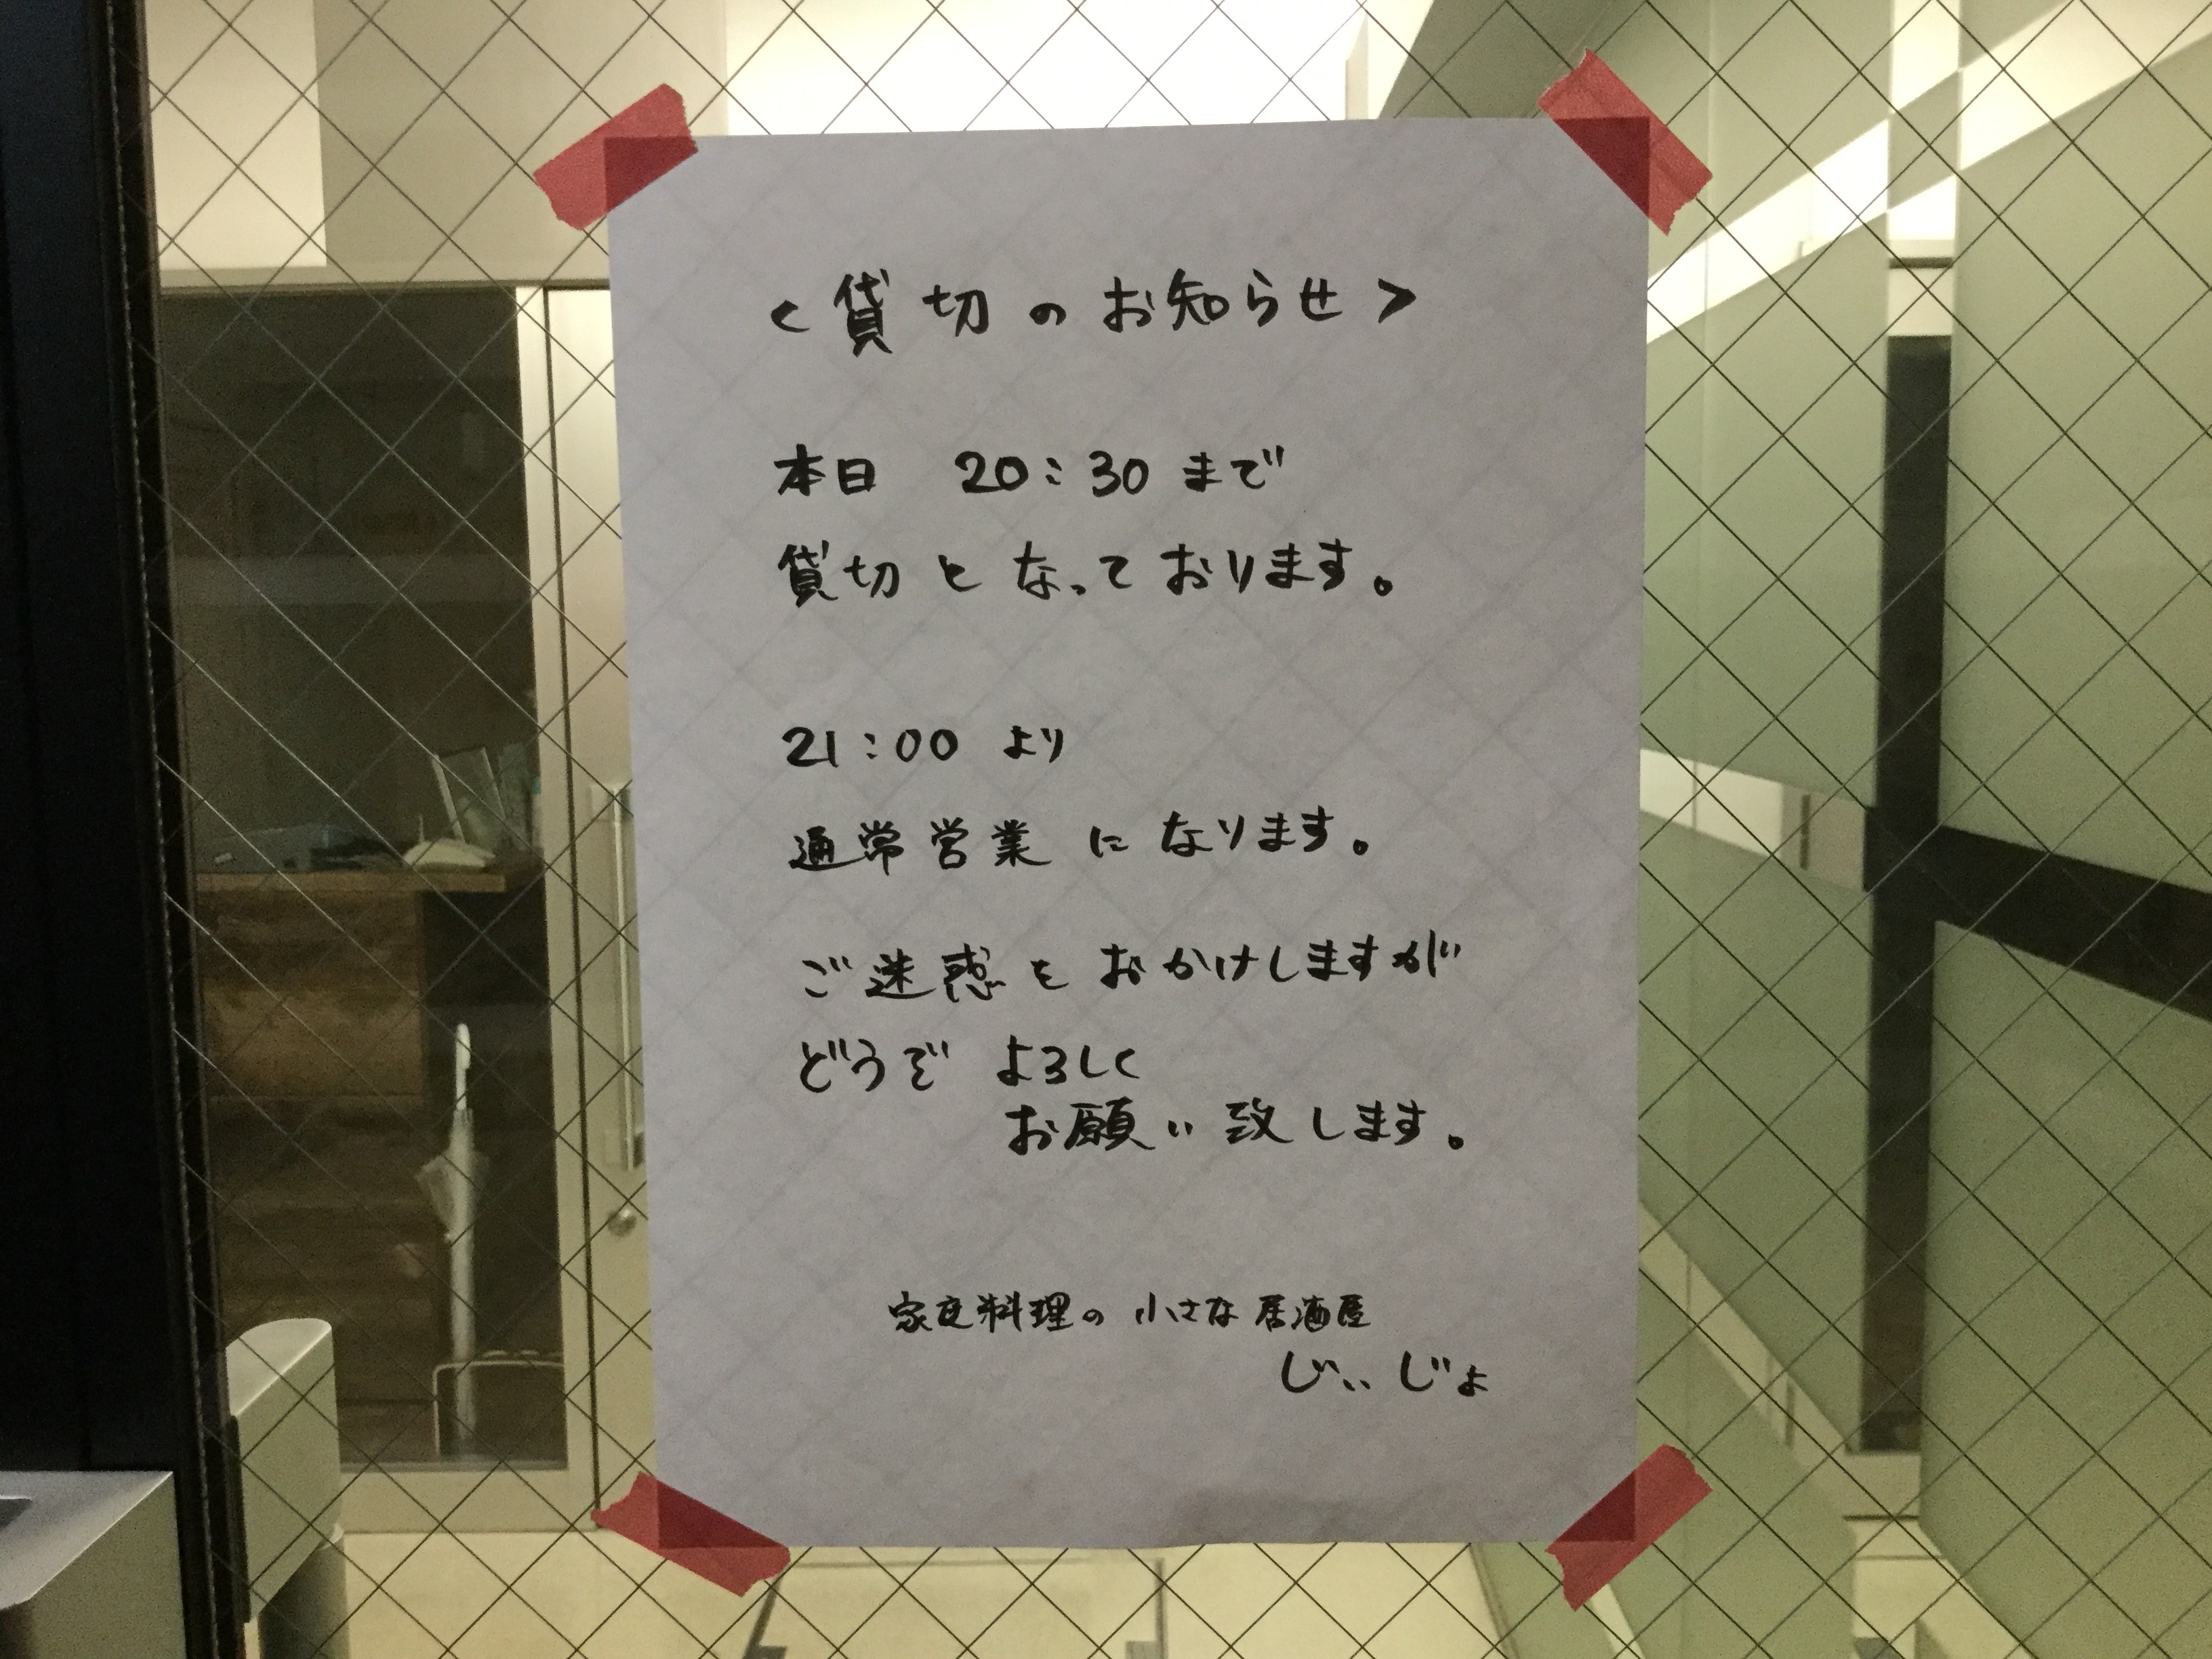 <貸切のお知らせ>
本日 20:30まで
貸切となっております。
21:00より
通常営業になります。
ご迷惑をおかけしますが
どうぞ よろしく
お願い致します。
家庭料理の小さな居酒屋
じぃじょ